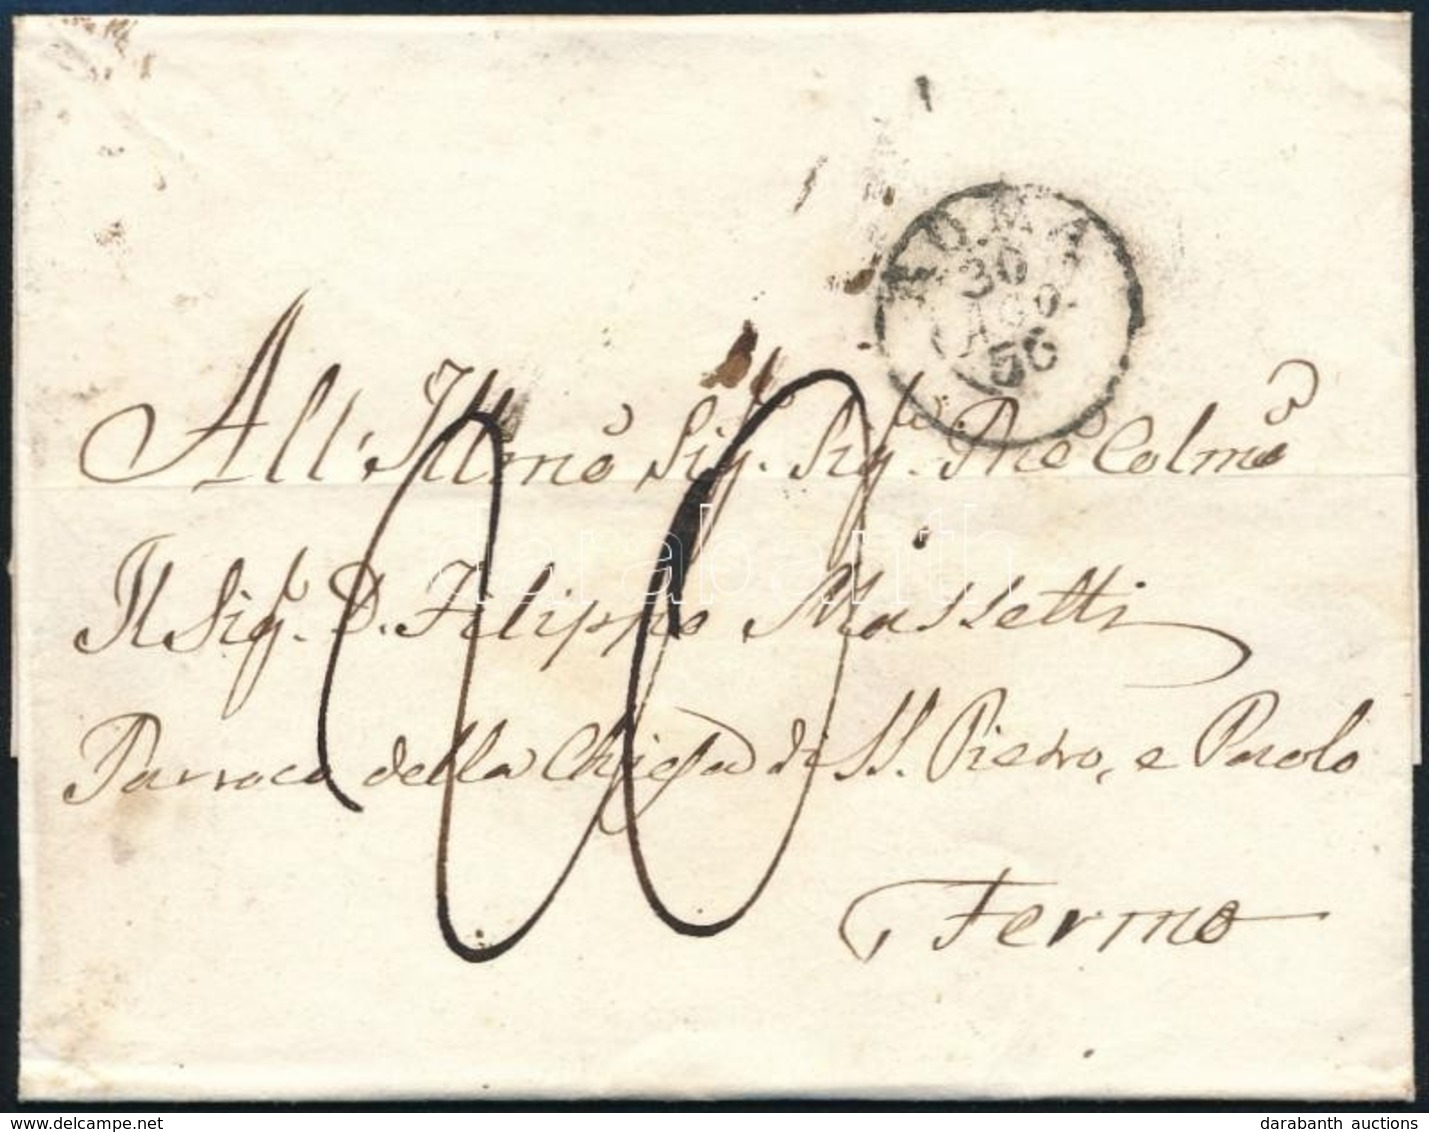 ROMA
30
AGO.
56
All' Illmo Sigr. Sigr. Pne Colmo
Il Sigr. D. Filippo Massetti
Parroco della Chiesa di SS. Pietro, e Paolo
Fermo
20
darabanth
delcampe.net
darabanth auctions